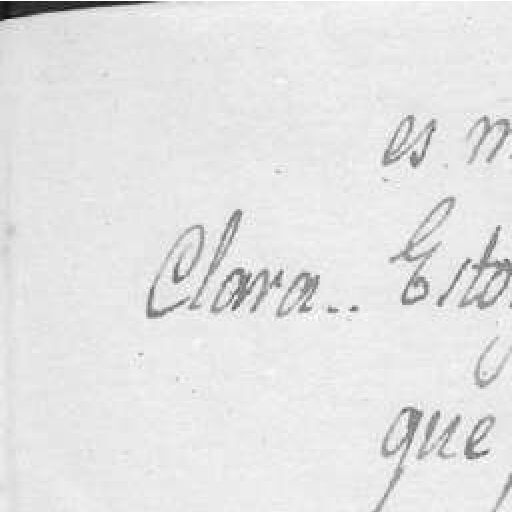 es
Clara.. Esto
que